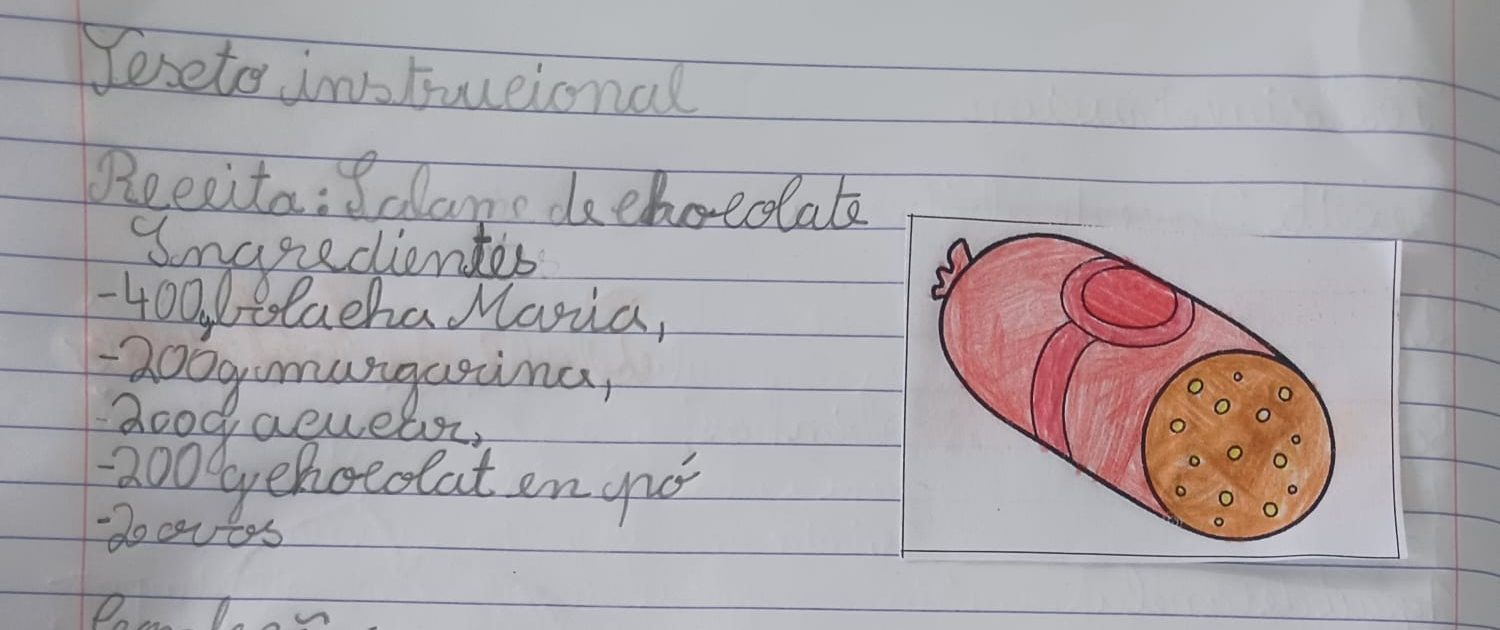 Texto instrucional
Receita: Salame de chocolate
Ingredientes
-400g bolacha Maria,
-200g murgarina,
-200g acucar,
-200g chocolat en pó
-2 ovos